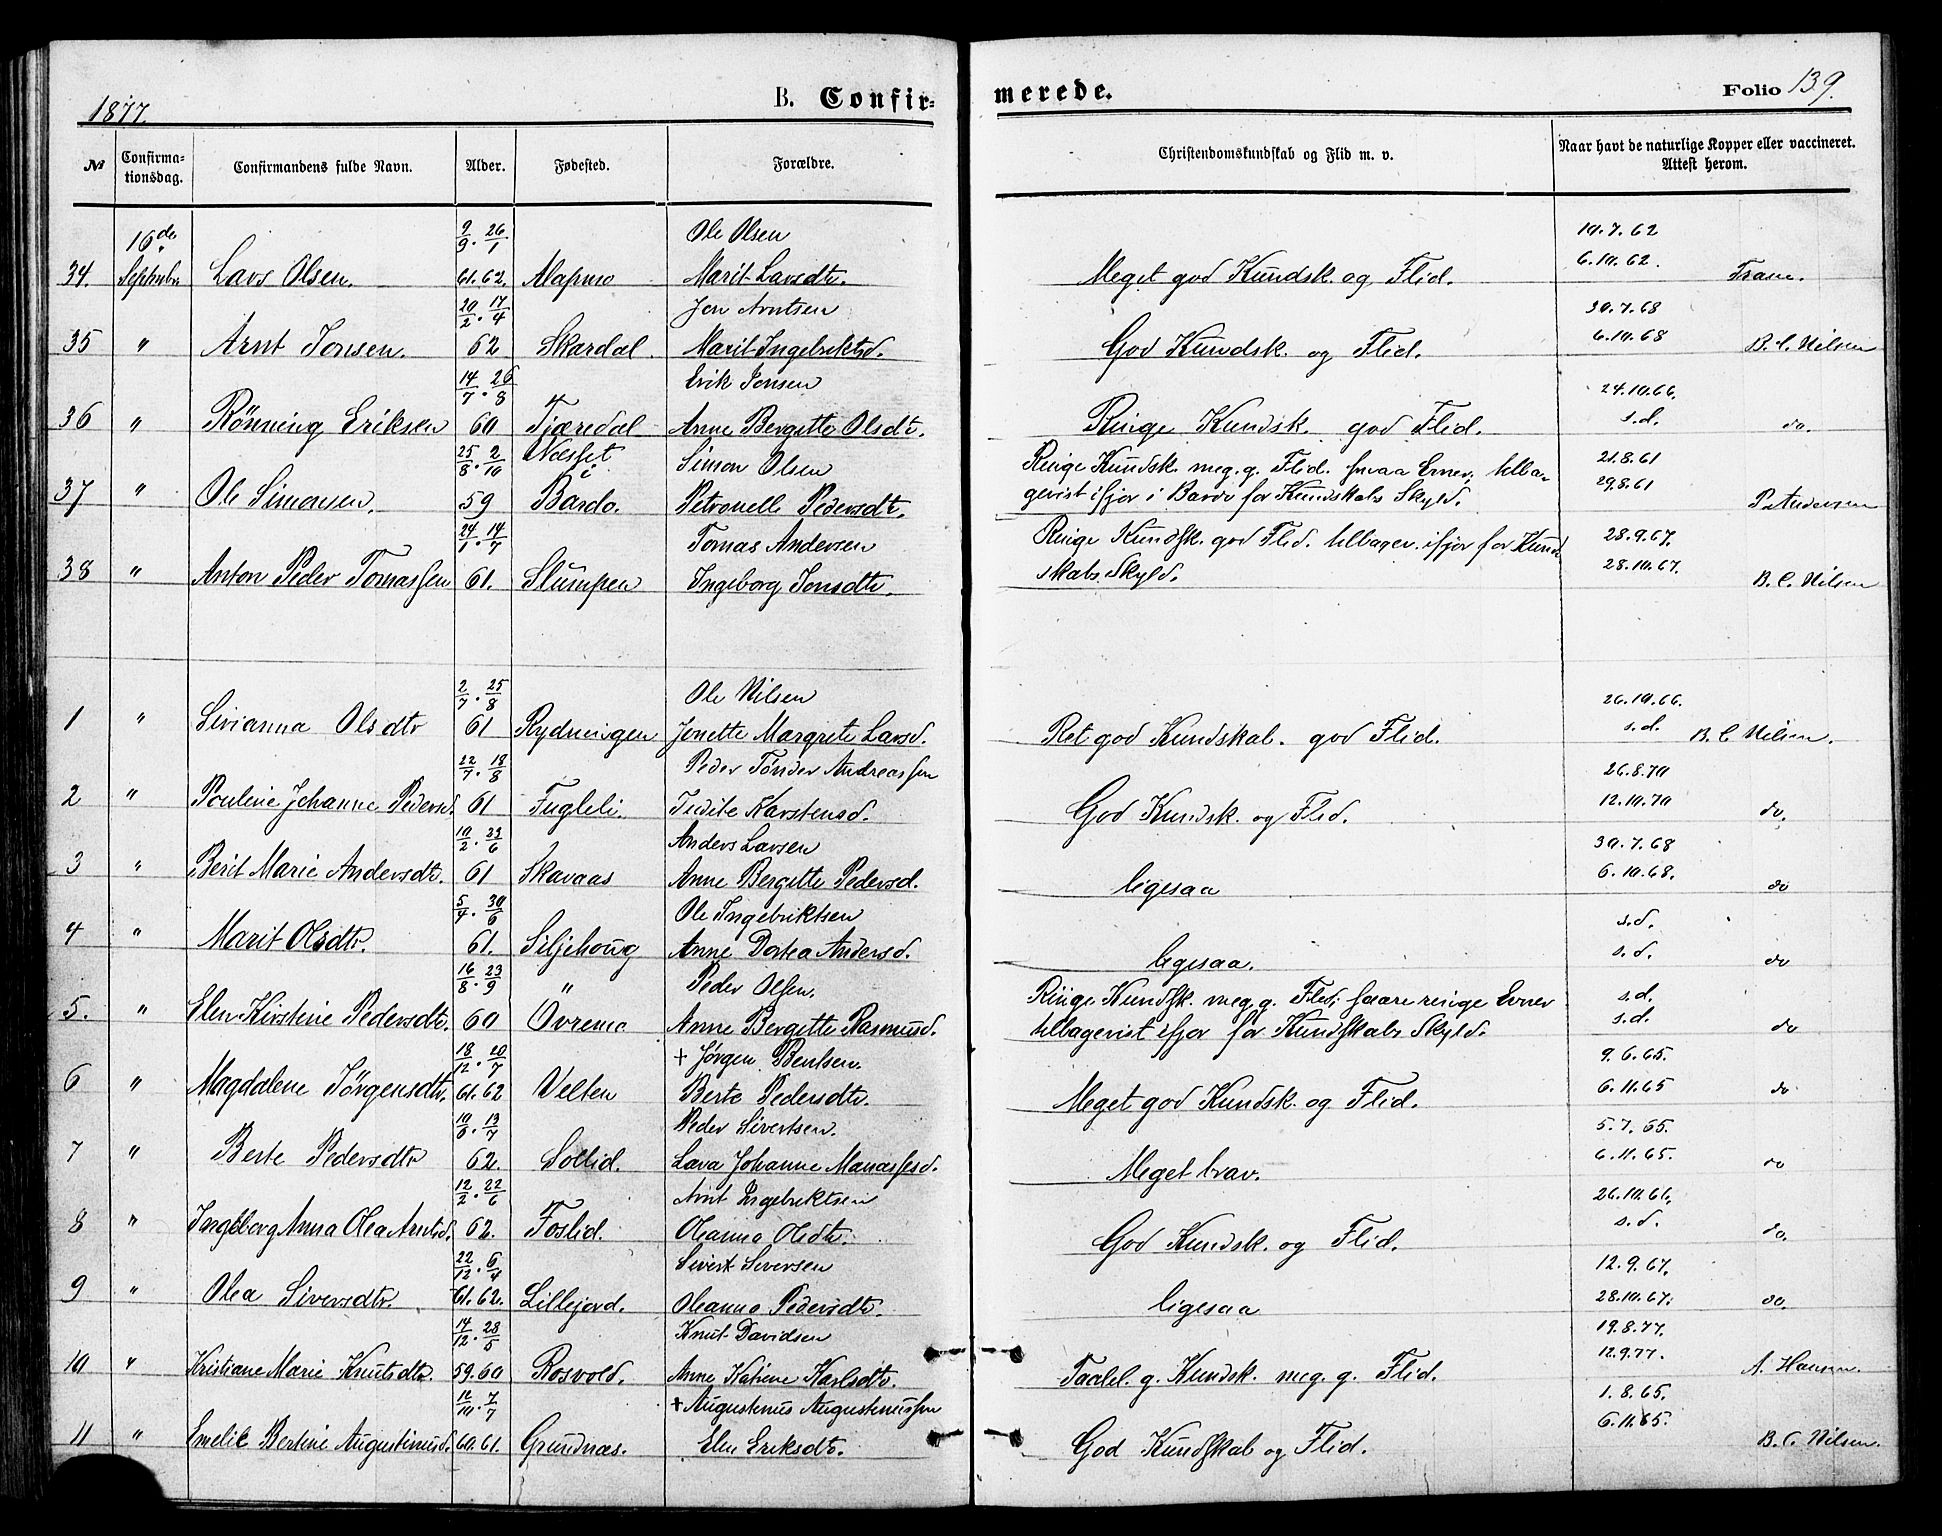 1877.
B. Confir=
merede.
Folio 139.
№
Confirma=
tionsdag.
Confirmandens fulde Navn.
Alder.
Fødested.
Forældre.
Christendomskundskab og Flid m. v.
Naar havt de naturlige Kopper eller vaccineret.
Attest herom.
16de 9/9. 26/1 Ole Olsen 10.7.62
34. Septembr Lars Olsen. 61.62. Alapmo Marit Larsdtr. Meget god Kundsk. og Flid. 6.10.62. Trane.
20/2. 17/4 Jon Arntsen 30.7.68
35 " Arnt Jonsen. 62 Skardal. Marit Ingebriktsd. God Kundsk. og Flid. 6.10.68 B. C. Nilsen
14/7. 26/8 Erik Jonsen 24.10.66.
36 " Rönning Eriksen 60 Tjæredal Anne Bergitte Olsdtr. Ringe Kundsk. god Flid. s.d. do.
25/8. 2/10 Næsset i Simon Olsen Ringe Kundsk. meg. g. Flid. smaa Evner, tilba- 21.8.61
37 " Ole Simonsen. 59 Bardo. Petronelle Pedersdtr. gevist ifjor i Bardo for Kundskabs Skyld. 29.8.61 P. Andersen
24/1. 14/7 Tomas Andersen Ringe Kundsk. god Flid. tilbagev. ifjor for Kund- 28.9.67.
38 " Anton Peder Tomassen 61. Slumpen Ingeborg Jonsdtr. skabs Skyld. 28.10.67. B. C. Nilsen
2/7. 25/8 Ole Nilsen 26.10.66.
1 " Sivianna Olsdtr 61 Rydningen Jonette Margrete Larsd. Ret god Kundskab. god Flid. s.d. B. C. Nilsen.
22/7. 18/8 Peder Tønder Andreassen 26.8.70
2 " Pouline Johanne Pedersd. 61 Fugleli. Karstensd. God Kundsk. og Flid. 12.10.70 do.
10/2. 23/6 Anders Larsen 30.7.68
3 " Berit Marie Andersdtr. 61 Skavaas Anne Bergitte Pedersd. ligesaa 6.10.68. do
5/4. 30/6 Ole Ingebriktsen s.d.
4 " Marit Olsdtr. 61. Siljehoug Anne Dortea Andersd. ligesaa. s.d. do
16/8. 23/9 " Peder Olsen. Ringe Kundsk. meg. g. Flid; saare ringe Evner s.d.
5. " Elen Kirstine Pedersdtr. 60 Øvremo Anne Bergitte Rasmusd. tilbagevist ifjor for Kundskabs Skyld. s.d. do
18/12. 20/7 + Jørgen Bentsen. 9.6.65.
6 " Magdalene Jörgensdtr. 61.62 Velten Berte Pedersdtr. Meget god Kundsk. og Flid. 6.11.65 do
10/6. 13/7 Peder Sivertsen. 5.7.65.
7 " Berte Pedersdtr 62. Sollid. Lava Johanne Manassesd. Meget brav. 6.11.65. do
12/2. 22/6 Arnt Ingebriktsen 26.10.66.
8 " Ingeborg Anna Olea Arntsd. 62. Foslid. Oleanna Olsdtr. God Kundsk. og Flid. s.d. do.
22/12. 6/4 Sivert Siversen 12.9.67.
9 " Olea Siversdtr. 61.62. Lillejord. Oleanna Pedersdtr. ligesaa 28.10.67. do.
14/12. 28/5 Knut Davidsen 19.8.77.
10 " Kristiane Marie Knutsdtr. 59.60 Rosvold. Anne Katrine Karlsdtr. Taalel. g. Kundsk. meg. g. Flid. 12.9.77. A. Hansen.
7/7 + Augustinus Augustinussen 1.8.65.
11 " Emelie Bertine Augustinusd. 60.61. Grundnæs. Elen Eriksdtr. God Kundskab og Flid. 6.11.65. B. C. Nilsen.